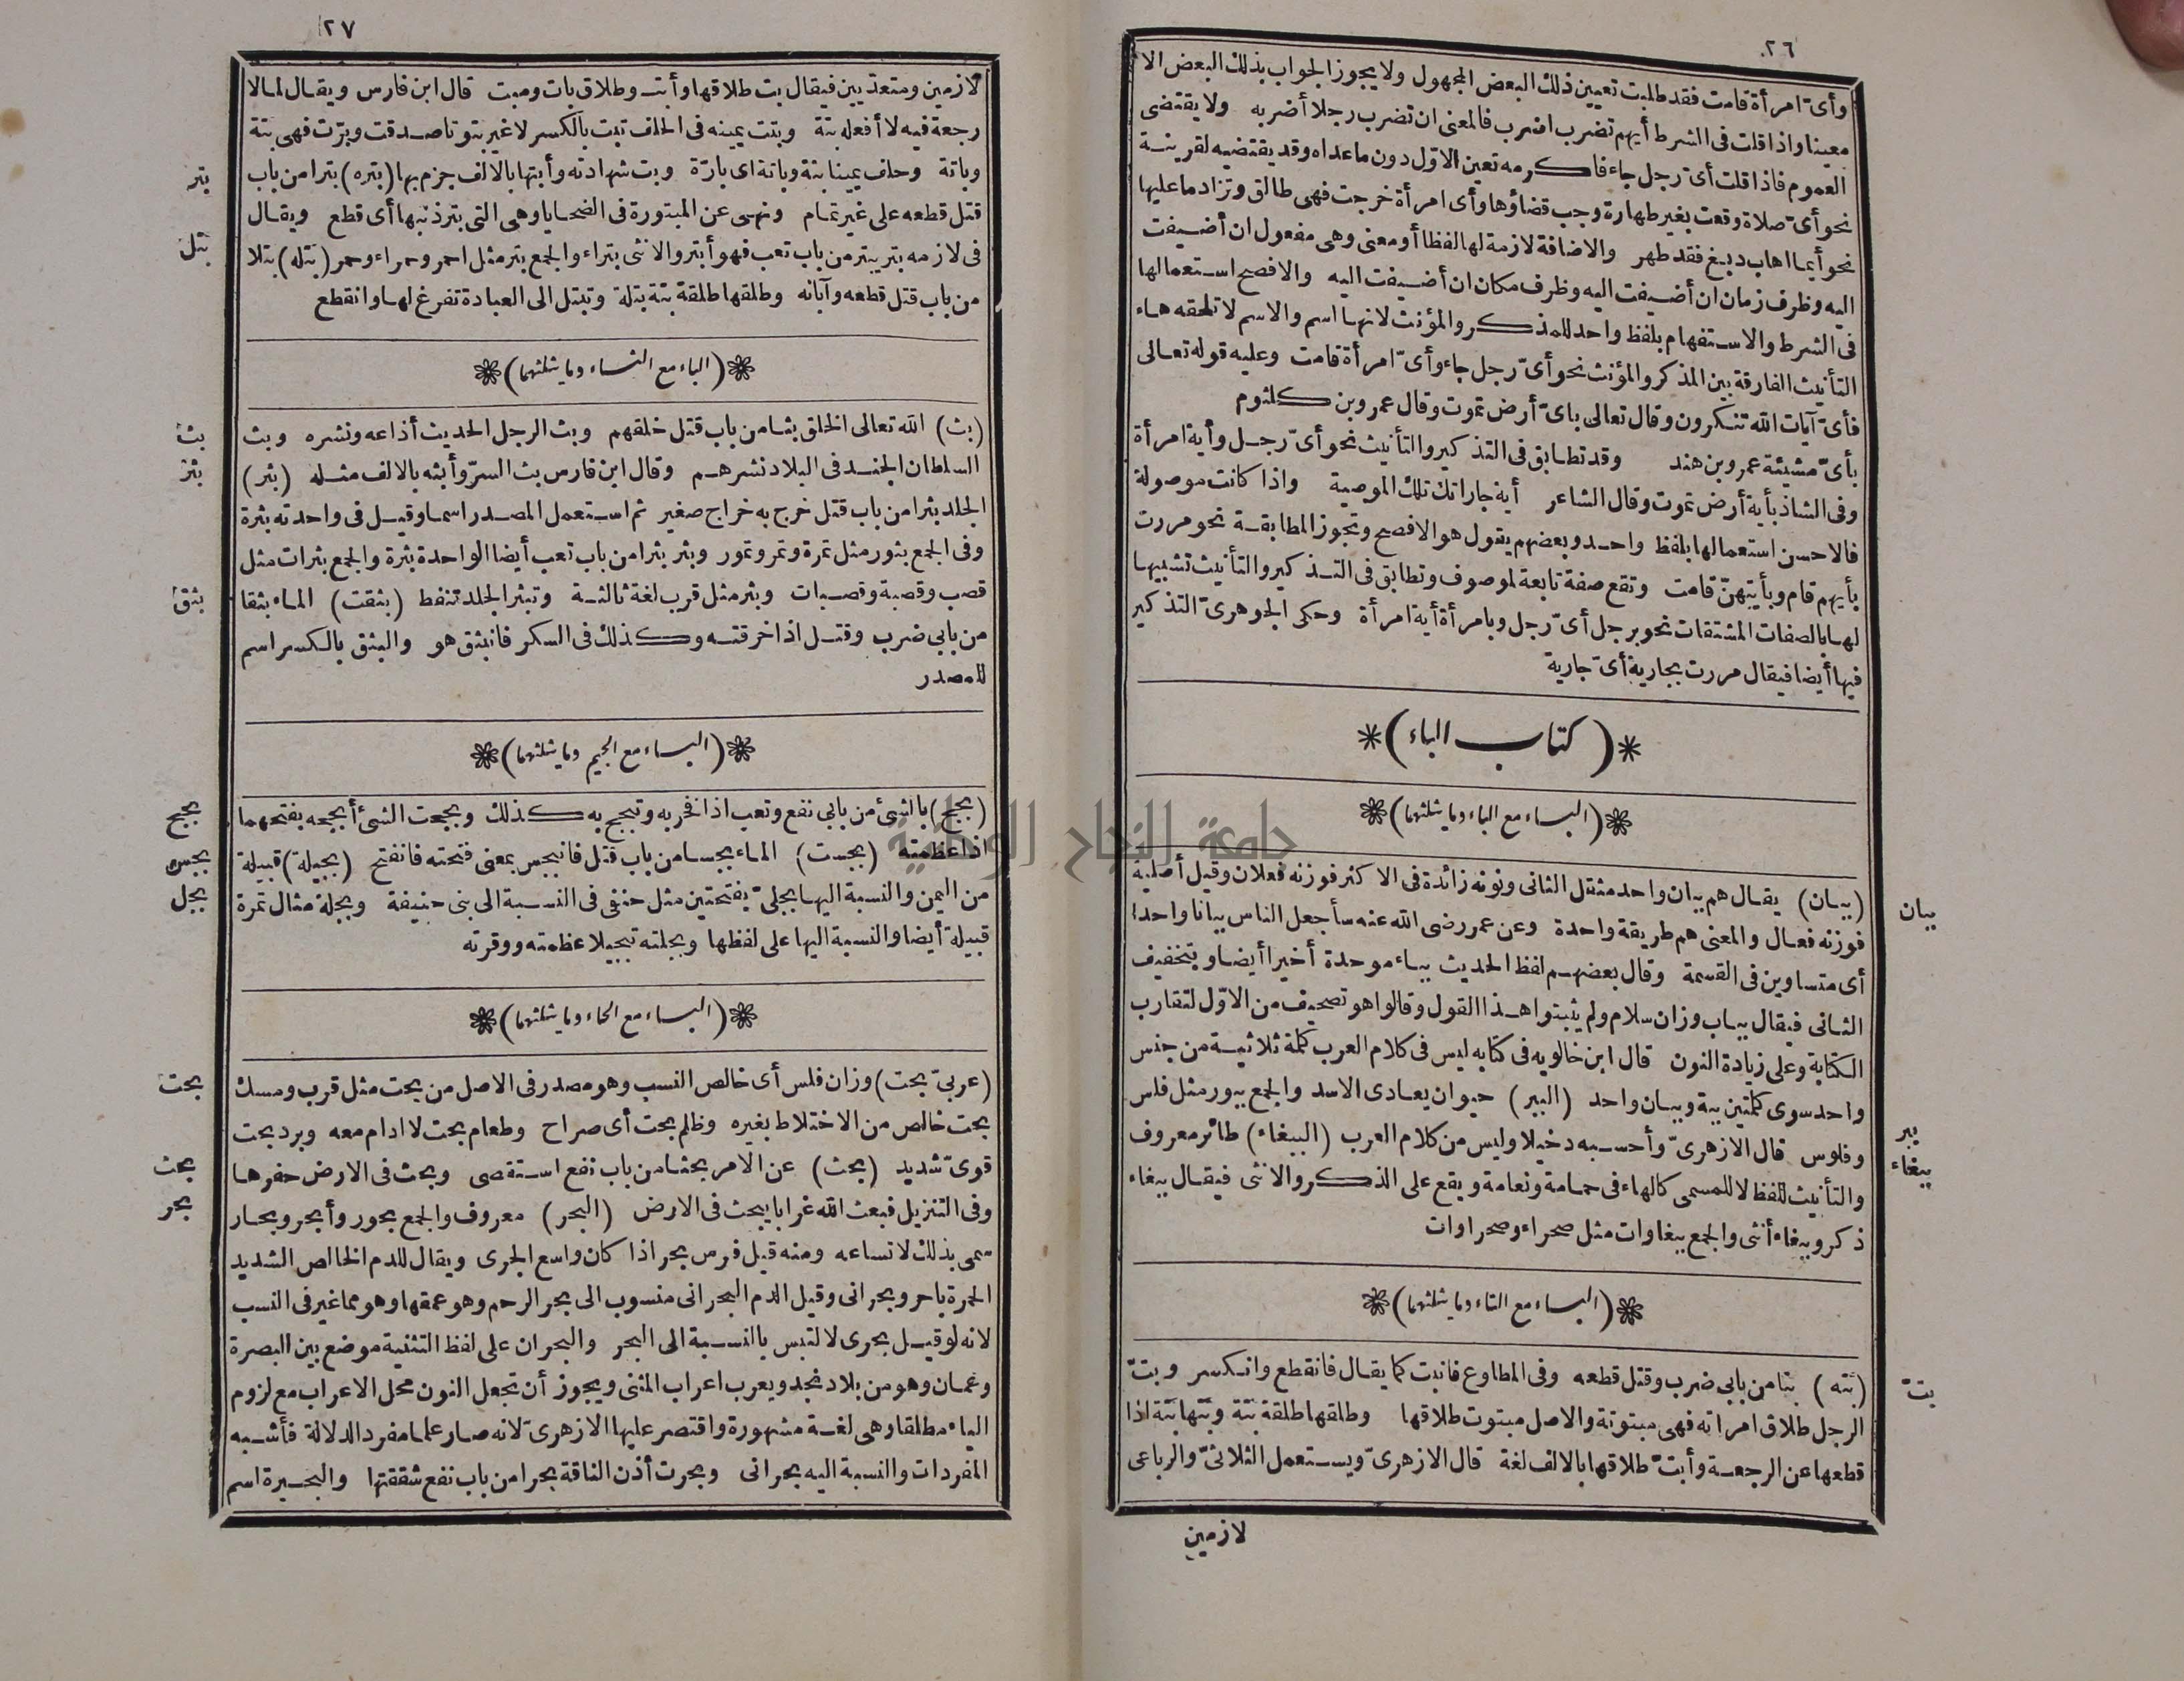 ٢٦
وأىّ امرأة قامت فقد طلبت تعيين ذلك البعض المجهول ولا يجوز الجواب بذلك البعض الا
معينا واذا قلت فى الشرط أيهم تضرب اضرب فالمعنى ان تضرب رجلا أضربه ولا يقتضى
العموم فاذا قلت أىّ رجل جاء فاكرمه تعين الاوّل دون ماعداه وقد يقتضيه لقرينة
نحو أىّ صلاة وقعت بغير طهارة وجب قضاؤها وأى امرأة خرجت فهى طالق وتزاد ما عليها
نحو أيما اهاب دبغ فقد طهر والاضافة لازمة لها لفظا أو معنى وهى مفعول ان أضيفت
اليه وظرف زمان ان أضيفت اليه وظرف مكان ان أضيفت اليه والافصح استعمالها
فى الشرط والاستفهام بلفظ واحد للمذكر والمؤنث لانها اسم والاسم لا تلحقه هاء
التأنيث الفارقة بين المذكر والمؤنث نحو أىّ رجل جاء وأىّ امرأة قامت وعليه قوله تعالى
فأىّ آيات الله تنكرون وقال تعالى باىّ أرض تموت وقال عمرو بن كلثوم
بأىّ مشيئة عمرو بن هند وقد تطابق فى التذكير والتأنيث نحو أىّ رجل وأية امرأة
وفى الشاذ بأية أرض تموت وقال الشاعر أية جاراتك تلك الموصية واذا كانت موصولة
فالاحسن استعمالها بلفظ واحد وبعضهم يقول هو الافصح وتجوز المطابقة نحو مررت
بأيهم قام وبأيتهنّ قامت وتقع صفة تابعة لموصوف وتطابق فى التذكير والتأنيث تشبيها
لها بالصفات المشتقات نحو برجل أىّ رجل وبامرأة أية امرأة وحكى الجوهرىّ التذكير
فيها أيضا فيقال مررت بجارية أىّ جارية
(كتاب الباء)
(الباء مع الباء وما يثلثهما)
(ببان) يقال هم ببان واحد مثقل الثانى ونونه زائدة فى الاكثر فوزنه فعلان وقيل أصلية
ببان
فوزنه فعال والمعنى هم طريقة واحدة وعن عمر رضى الله عنه سأجعل الناس ببانا واحدا
أى متساوين فى القسمة وقال بعضهم لفظ الحديث بباء موحدة أخيرا أيضا وبتخفيف
الثانى فيقال بباب وزان سلام ولم يثبتوا هذا القول وقالوا هو تصحيف من الاوّل لتقارب
الكتابة وعلى زيادة النون قال ابن خالويه فى كتابه ليس فى كلام العرب كلمة ثلاثية من جنس
واحد سوى كلمتين ببة وببان واحد (الببر) حيوان يعادى الاسد والجمع ببور مثل فلس
ببر
وفلوس قال الازهرىّ وأحسبه دخيلا وليس من كلام العرب (الببغاء) طائر معروف
ببغاء
والتأنيث للفظ لا للمسمى كالهاء فى حمامة ونعامة ويقع على الذكر والانثى فيقال ببغاء
ذكر وببغاء أنثى والجمع ببغاوات مثل صحراء وصحراوات
(الباء مع التاء وما يثلثهما)
(بته) بتا من بابى ضرب وقتل قطعه وفى المطاوع فانبت كما يقال فانقطع وانكسر وبتّ
بتّ
الرجل طلاق امرأته فهى مبتوتة والاصل مبتوت طلاقها وطلقها طلقة بتة وبتها بتة اذا
قطعها عن الرجعة وأبتّ طلاقها بالالف لغة قال الازهرىّ ويستعمل الثلاثىّ والرباعى
لازمين
جامعة النجاح الوطنية
٢٧
لازمين ومتعديين فيقال بت طلاقها وأبت وطلاق بات ومبت قال ابن فارس ويقال لما لا
رجعة فيه لا أفعله بتة وبتت يمينه فى الحلف تبت بالكسر لا غير بتوتا صدقت وبرّت فهى بتة
وباتة وحلف يمينا بتة وباتة اى بارّة وبت شهادته وأبتها بالالف جزم بها (بتره) بترا من باب
بتر
قتل قطعه على غير تمام ونهى عن المبتورة فى الضحايا وهى التى بتر ذنبها أى قطع ويقال
فى لازمه بتر يبتر من باب تعب فهو أبتر والانثى بتراء والجمع بتر مثل احمر وحمراء وحمر (بتله) بتلا
بتل
من باب قتل قطعه وآبانه وطلقها طلقة بتة بتلة وتبتل الى العبادة تفرغ لها وانقطع
(الباء مع الثاء وما يثلثهما)
(بث) الله تعالى الخلق بثا من باب قتل خلقهم وبث الرجل الحديث أذاعه ونشره وبث
بث
السلطان الجند فى البلاد نشرهم وقال ابن فارس بث السرّ وأبثه بالالف مثله (بثر)
بثر
الجلد بثرا من باب قتل خرج به خراج صغير ثم استعمل المصدر اسما وقيل فى واحدته بثرة
وفى الجمع بثور مثل تمرة وتمر وتمور وبثر بثرا من باب تعب أيضا الواحدة بثرة والجمع بثرات مثل
قصب وقصبة وقصبات وبثر مثل قرب لغة ثالثة وتبثر الجلد تنفط (بثقت) الماء بثقا
بثق
من بابى ضرب وقتل اذا خرقته وكذلك فى السكر فانبثق هو والبثق بالكسر اسم
للمصدر
(الباء مع الجيم وما يثلثهما)
(بجح) بالشئ من بابى نفع وتعب اذا فخر به وتبجح به كذلك وبجحت الشئ أبجحه بفتحهما
بجح
اذا عظمته (بجست) الماء بجسا من باب قتل فانبجس بمعنى فتحته فانفتح (بجيلة) قبيلة
بجس
من اليمن والنسبة اليها بجلىّ بفتحتين مثل حنفى فى النسبة الى بنى حنيفة وبجلة مثال تمرة
بجل
قبيلة أيضا والنسبة اليها على لفظها وبجلته تبجيلا عظمته ووقرته
(الباء مع الحاء وما يثلثهما)
(عربىّ بحت) وزان فلس أى خالص النسب وهو مصدر فى الاصل من بحت مثل قرب ومسك
بحت
بحت خالص من الاختلاط بغيره وظلم بحت أى صراح وطعام بحت لا ادام معه وبرد بحت
قوىّ شديد (بحث) عن الامر بحثا من باب نفع استقصى وبحث فى الارض حفرها
بحث
وفى التنزيل فبعث الله غرابا يبحث فى الارض (البحر) معروف والجمع بحور وأبحر وبحار
بحر
سمى بذلك لاتساعه ومنه قيل فرس بحر اذا كان واسع الجرى ويقال للدم الخالص الشديد
الحمرة باحر وبحرانى وقيل الدم البحرانى منسوب الى بحر الرحم وهو عمقها وهو مما غير فى النسب
لانه لو قيل بحرى لالتبس بالنسبة الى البحر والبحران على لفظ التثنية موضع بين البصرة
وعمان وهو من بلاد نجد ويعرب اعراب المثنى ويجوز أن تجعل النون محل الاعراب مع لزوم
الياء مطلقا وهى لغة مشهورة واقتصر عليها الازهرىّ لانه صار علما مفرد الدلالة فأشبه
المفردات والنسبة اليه بحرانى وبحرت أذن الناقة بحرا من باب نفع شققتها والبحيرة اسم